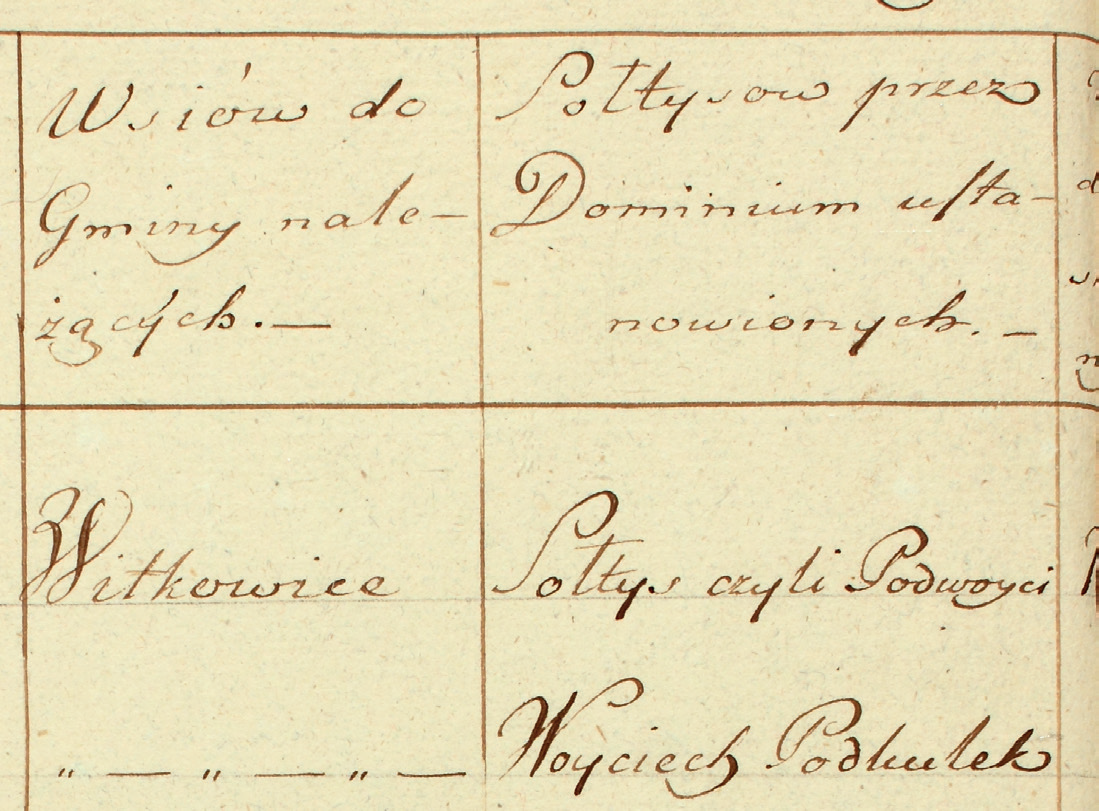 Wsiów do
Gminy nale-
żących. —
Sołtysow przez
Dominium usta-
nowionych. —
Witkowice
Sołtys czyli Podwoyci
" — " — " —
Woyciech Podkulek